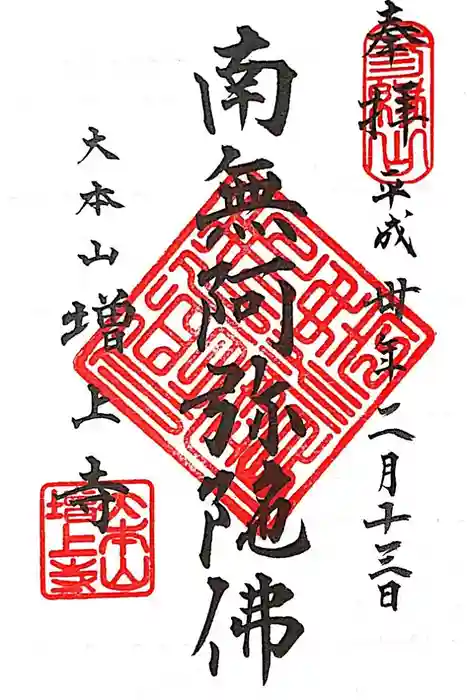 奉拝
平成廿年二月十三日
南無阿弥陀佛
大本山増上寺
大本山
増上寺